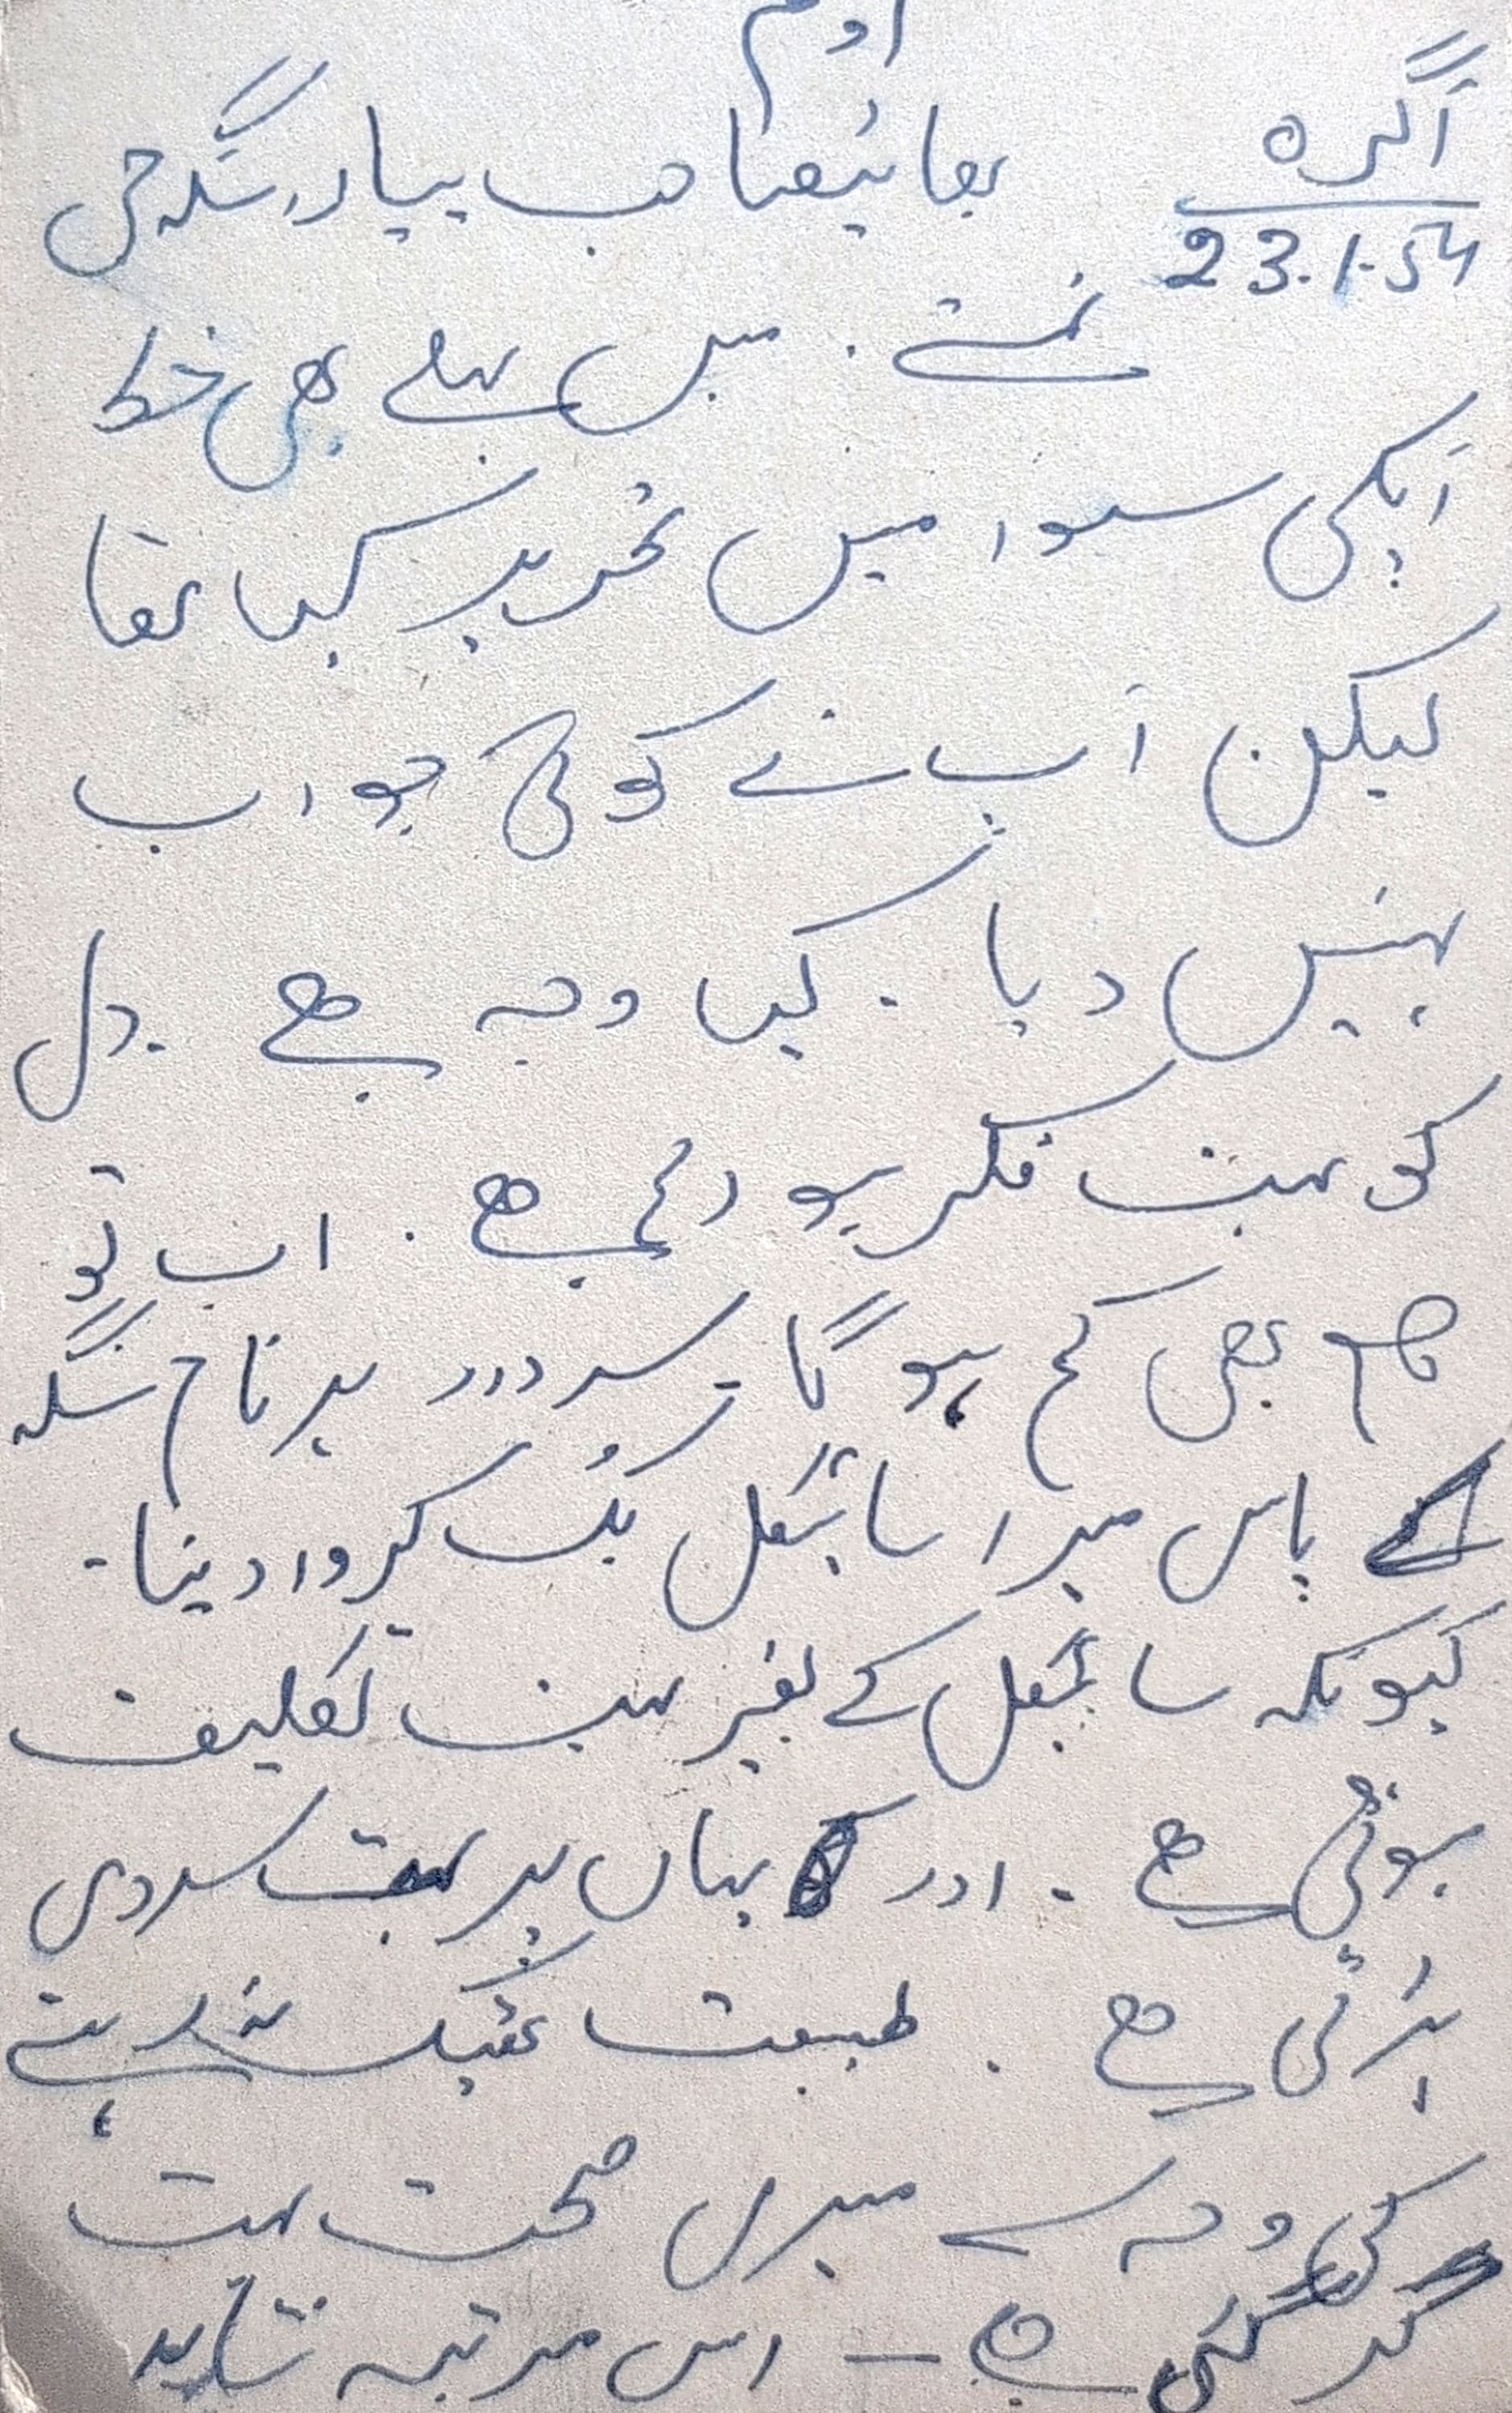 اوم
آگرہ
23.1.54
بھائیصاحب پیارسنگہ جی
نمستے . میں پہلے بھی خط
آپکی سیوا میں تحریر کیا تھا
لیکن آپ نے کوئی جواب
نہیں دیا . کیا وجہ ھے . دل
کو بہت فکر ہو رہی ھے . اب تو
کام بھی کم ہوگا - سردار سنگہ
کے پاس میرا سائیکل بک کروا دینا -
کیونکہ سائیکل کے بغیر بہت تکلیف
ہوتی ھے - اور یہاں پر بہت سردی
پڑتی ھے . طبیعت ٹھیک نہ رہنے
کی وجہ سے میری صحت بہت
گر گئی ہے – اس مرتبہ شاید